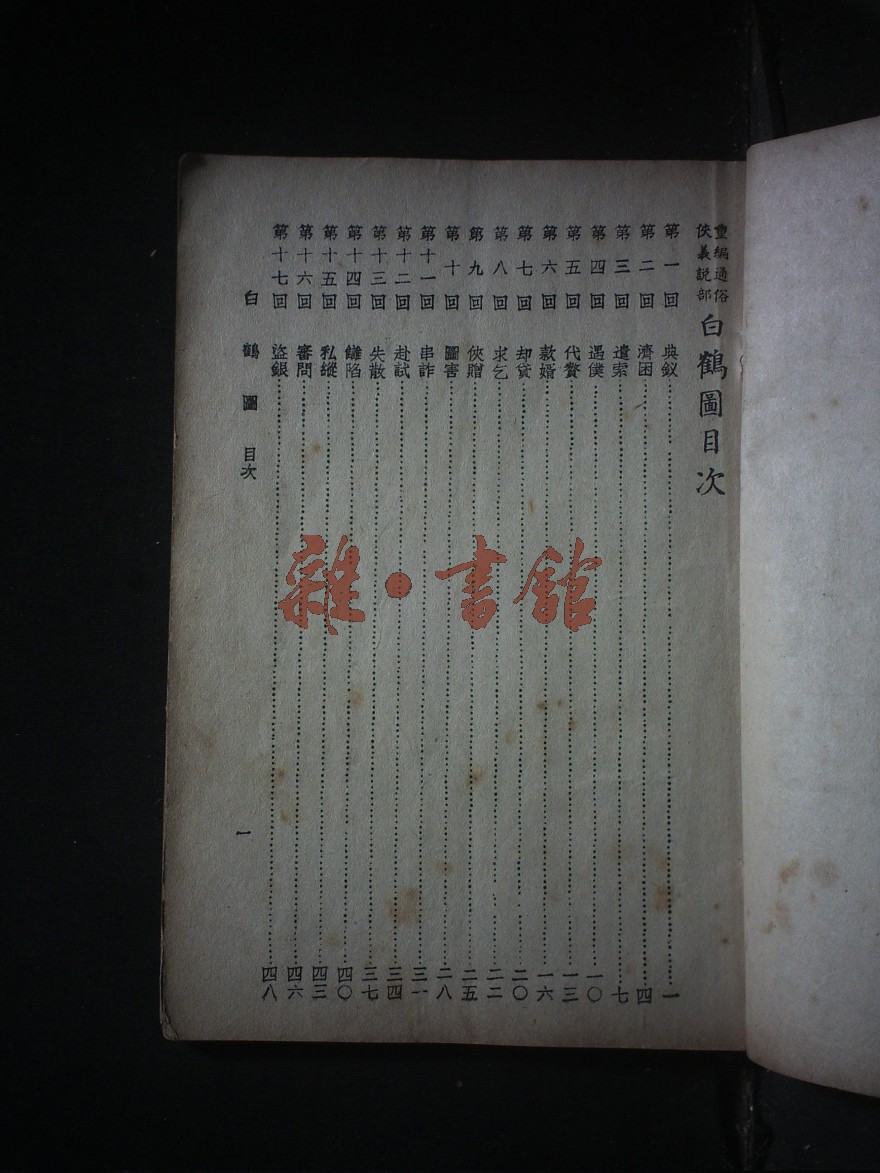 重編通俗
俠義說部
白鶴圖目次
第一回 典釵……一
第二回 濟困……四
第三回 遺索……七
第四回 遇僕……一〇
第五回 代贅……一三
第六回 款婿……一六
第七回 却貸……二〇
第八回 求乞……二二
第九回 俠贈……二五
第十回 圖害……二八
第十一回 串詐……三一
第十二回 赴試……三四
第十三回 失散……三七
第十四回 讎陷……四〇
第十五回 私縱……四三
第十六回 審問……四六
第十七回 盜銀……四八
白鶴圖 目次
一
雜·書館